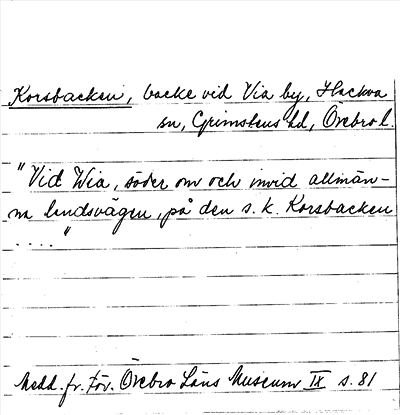 Korsbacken, backe vid Via by, Hackva
sn, Grimstens hd, Örebro l.
"Vid Wia, söder om och invid allmän-
na landsvägen, på den s.k. Korsbacken
...."
Medd. fr. För. Örebro Läns Museum IX s. 81